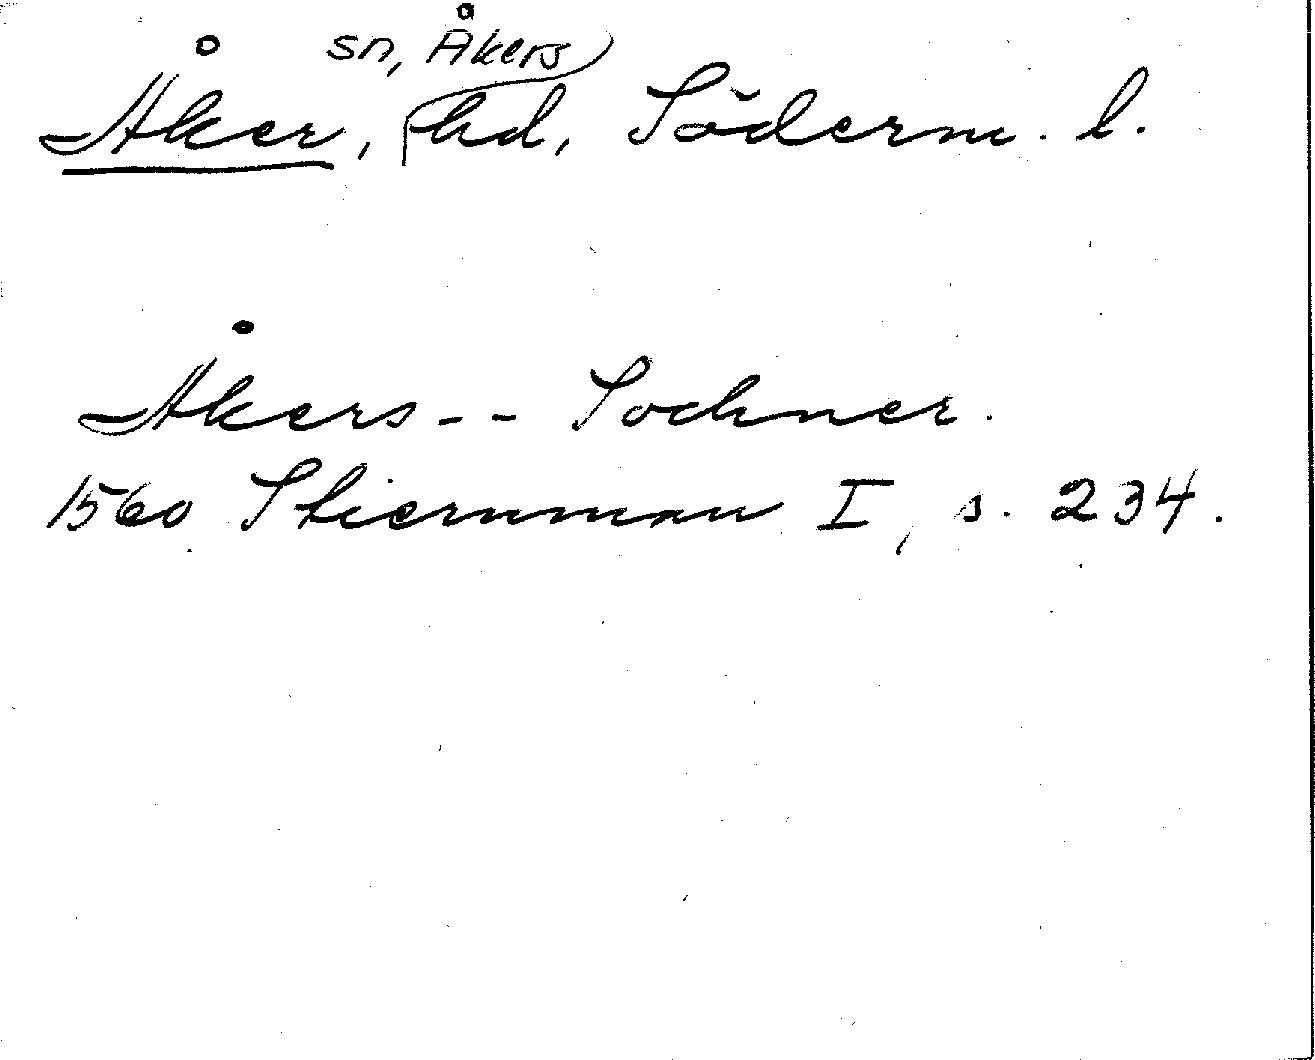 Åker, sn, Åkers hd, Söderm. l.
Åkers-- Sochner.
1560 Stiernman I, s. 234.